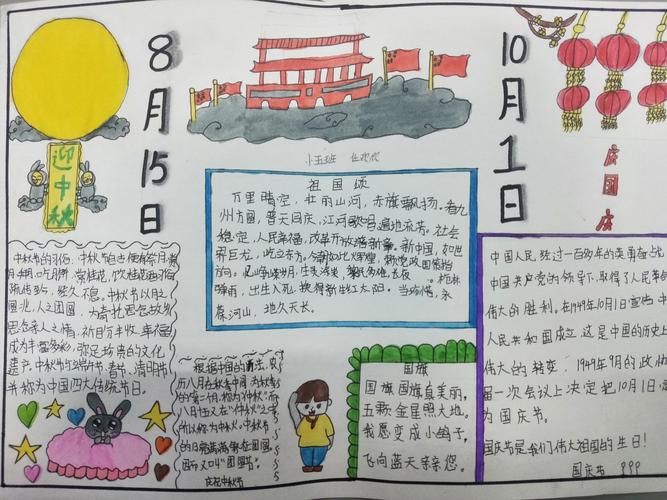 8月15日
10月1日
迎中秋
庆国庆
祖国颂
万里晴空,壮丽山河,赤旗飘扬。看九
州方圆,普天同庆,江河歌唱,遍地流芳。社会
稳定,人民幸福,改革开放谱新章。新中国,如世
界巨龙,屹立东方。
出生入死,换得新红太阳。当珍惜,永
葆河山,地久天长。
中秋节的习俗,中秋节自古便有祭月,赏
月,拜月,吃月饼,赏桂花,饮桂花酒等习俗
流传至今,经久不息。中秋节以月之
圆兆人之团圆,为寄托思念故乡
思念亲人之情,祈盼丰收,幸福
成为丰富多彩,弥足珍贵的文化
遗产。中秋节与端午节,春节,清明节
并称为中国四大传统节日。
根据中国的历法,农
历八月在秋季中间,为秋季
的第二个月,称为"仲秋"
月十五又在"仲秋"之中
所以称为"中秋"。中秋节
的
团圆节"。
庆祝中秋节
国旗
国旗国旗真美丽,
五颗金星照大地。
我愿变成小鸽子,
飞向蓝天亲亲您。
中国人民经过一百多年的英勇奋
中国共产党的领导下,取得了人民革
伟大的胜利。在1949年10月1日宣
人民共和国成立,这是中国的历史
伟大的转变。1949年9月的政协
届一次会议上决定把10月1日
为国庆节。
国庆节是我们伟大祖国的生日!
国庆节